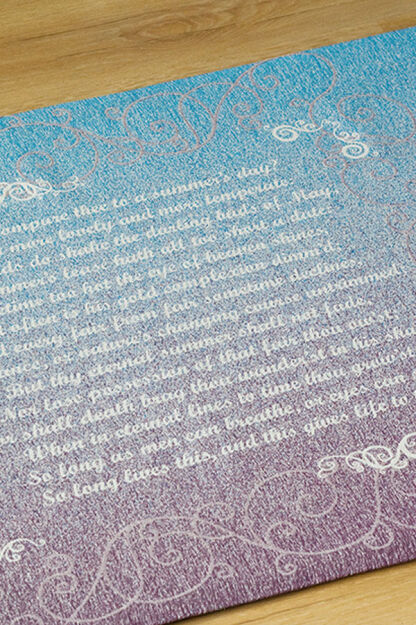 mpare thee to a summer's day?
more lovely and more temperate.
ds do shake the darling buds of May,
mmer's lease hath all too short a date.
ime too hot the eye of heaven shines,
often is his gold complexion dimm'd;
every fair from fair sometime declines,
nce or nature's changing course untrimm'd;
But thy eternal summer shall not fade,
Nor lose possession of that fair thou owest;
or shall death brag thou wander'st in his sha
When in eternal lines to time thou grow'st
So long as men can breathe, or eyes can
So long lives this, and this gives life to